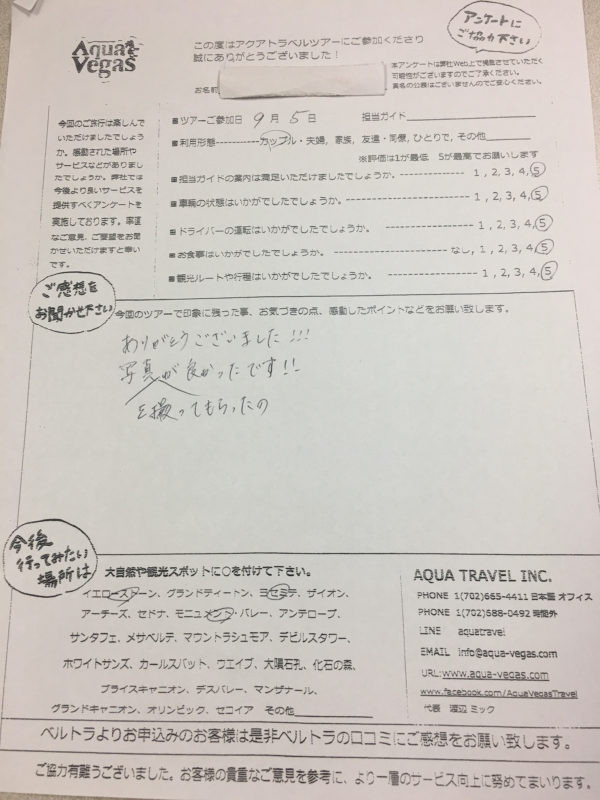 Aqua Vegas
この度はアクアトラベルツアーにご参加くださり
誠にありがとうございました！
アンケートに
ご協力下さい
本アンケートは弊社Web上で掲載させていただく
可能性がございますのでご了承ください。
実名の公表はございませんのでご安心ください。
お名前
今回のご旅行は楽しんで
いただけましたでしょう
か。感動された場所や
サービスなどがありまし
たでしょうか。弊社では
今後より良いサービスを
提供すべくアンケートを
実施しております。率直
なご意見、ご要望をお聞
かせいただけますと幸い
です。
■ツアーご参加日 9月 5日 担当ガイド
■利用形態-----------カップル・夫婦, 家族, 友達・同僚, ひとりで, その他
※評価は1が最低 5が最高でお願いします
■担当ガイドの案内は満足いただけましたでしょうか。 ---------------- 1 , 2, 3, 4, 5
■車輌の状態はいかがでしたでしょうか。 ---------------- 1 , 2, 3, 4, 5
■ドライバーの運転はいかがでしたでしょうか。 ---------------- 1 , 2, 3, 4, 5
■お食事はいかがでしたでしょうか。 ---------------- なし, 1 , 2, 3, 4, 5
■観光ルートや行程はいかがでしたでしょうか。 ---------------- 1 , 2, 3, 4, 5
ご感想を
お聞かせ下さい
今回のツアーで印象に残った事、お気づきの点、感動したポイントなどをお願い致します。
ありがとうございました!!!
写真が良かったです!!
を撮ってもらったの
今後
行ってみたい
場所は
大自然や観光スポットに○を付けて下さい。
イエローストーン、グランドティートン、ヨセミテ、ザイオン、
アーチーズ、セドナ、モニュメント・バレー、アンテロープ、
サンタフェ、メサベルテ、マウントラシュモア、デビルスタワー、
ホワイトサンズ、カールスバット、ウエイブ、大隕石孔、化石の森、
ブライスキャニオン、デスバレー、マンザナール、
グランドキャニオン、オリンピック、セコイア その他
AQUA TRAVEL INC.
PHONE 1(702)665-4411 日本語 オフィス
PHONE 1(702)588-0492 時間外
LINE aquatravel
EMAIL info@aqua-vegas.com
URL:www.aqua-vegas.com
www.facebook.com/AquaVegasTravel
代表 渡辺 ミック
ベルトラよりお申込みのお客様は是非ベルトラの口コミにご感想をお願い致します。
ご協力有難うございました。お客様の貴重なご意見を参考に、より一層のサービス向上に努めてまいります。